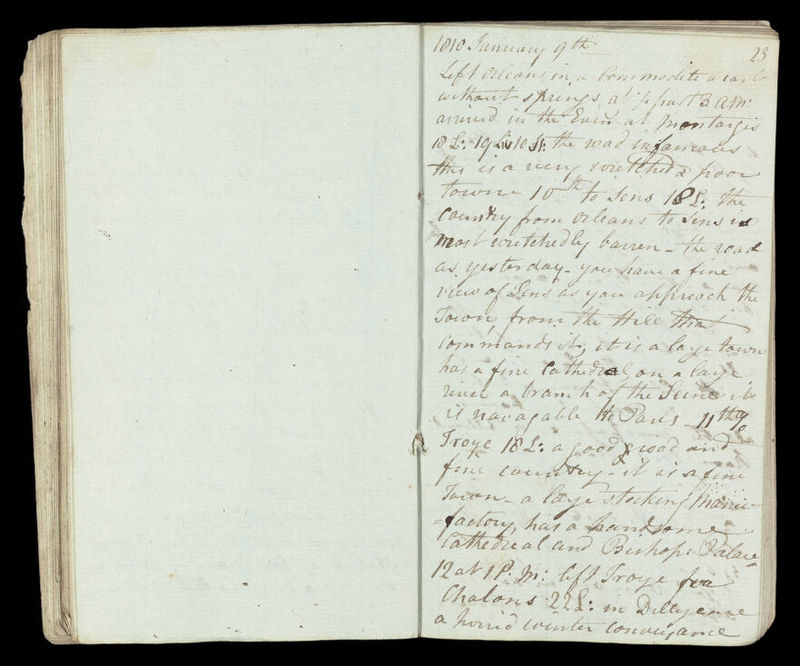 1810 January 9th
23
Left Orleans in a Commodite a cart
without springs, at ½ past 3 AM:
arrived in the Even: at Montargis
18 L: the road infamous
this is a very wretched & poor
towne 10th to Sens 18 L: the
Country from Orleans to Sens is
most wretchedly barren - the road
as yesterday - you have a fine
view of Sens as you approach the
Town, from the Hill that
commands it, it is a large town
has a fine Cathedral on a large
river a branch of the Seine it
is navagable to Paris - 11th
Troye 18 L: a good road and
fine country - it is a fine
Town - a large stocking Manu-
-factory, has a handsome
Cathedreal and Bishops Palace
12 at 1 P.M: left Troye for
Chalons 22 L: in Diligence
a horrid winter conveyance